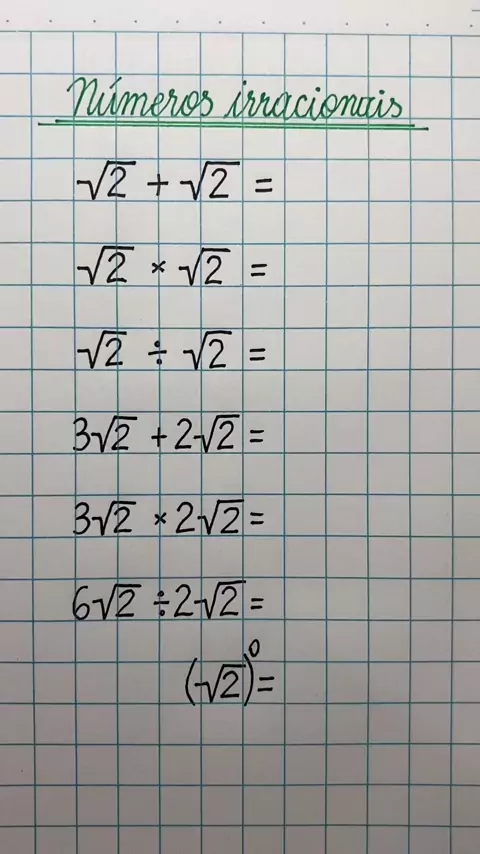 Números irracionais
√2 + √2 =
√2 × √2 =
√2 ÷ √2 =
3√2 + 2√2 =
3√2 × 2√2 =
6√2 ÷ 2√2 =
(√2)⁰ =